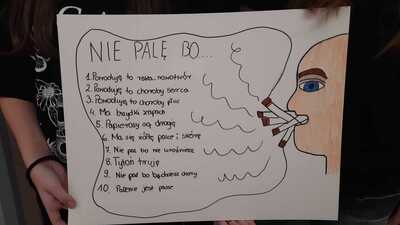 NIE PALĘ BO...
1. Powoduję to raka, nowotwór
2. Powoduję to choroby serca
3. Powoduję to choroby płuc
4. Ma brzydki zapach
5. Papierosy są drogie
6. Ma się żółte palce i skórę
7. Nie pal bo nie urośniesz
8. Tytoń truje
9. Nie pal bo będziesz chory
10. Palenie jest